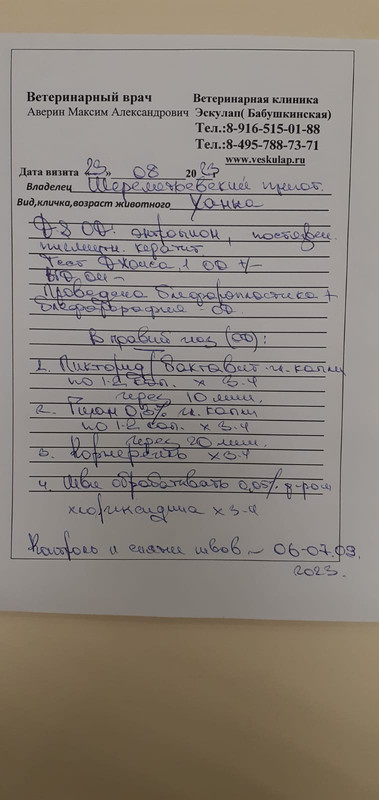 Ветеринарный врач
Аверин Максим Александрович
Ветеринарная клиника
Эскулап( Бабушкинская)
Тел.:8-916-515-01-88
Тел.:8-495-788-73-71
www.veskulap.ru
Дата визита 23 » 08 2023
Владелец Шереметьевский приют.
Вид,кличка,возраст животного Ханна
DS OD: энтропион,
пигментн. кератит.
Тест Джонса 1 OD +/-
Проведена блефаропластика +
блефарорафия - OD.
В правый глаз (OD):
1. / Вактавит - гл. капли
по 1-2 кап. х 3-4
через 10 мин.
2. 0,3% гл. капли
по 1-2 кап. х 3-4
через 20 мин.
3. Корнерегель х 3-4
4. Швы обрабатывать 0,05% р-ром
хлоргексидина х 3-4
Контроль и снятие швов ~ 06-07.09.
2023.